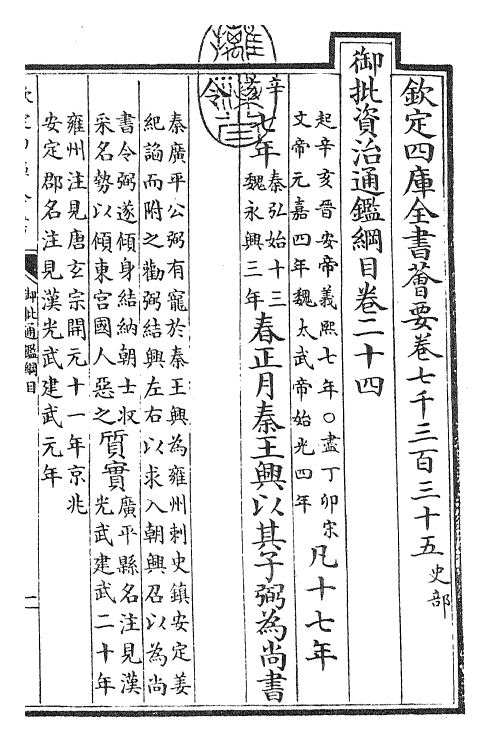 欽定四庫全書薈要卷七千三百三十五 史部
御批資治通鑑綱目卷二十四
起辛亥晉安帝義熙七年〇盡丁卯宋
文帝元嘉四年魏太武帝始光四年
凡十七年
辛
七年
秦弘始十三
魏永興三年
春正月秦王興以其子弼為尚書
令
秦廣平公弼有寵於秦王興為雍州刺史鎮安定姜
紀諂而附之勸弼結興左右以求入朝興召以為尚
書令弼遂傾身結納朝士収
采名勢以傾東宮國人惡之
質實
廣平縣名注見漢
光武建武二十年
雍州注見唐玄宗開元十一年京兆
安定郡名注見漢光武建武元年
御批通鑑綱目